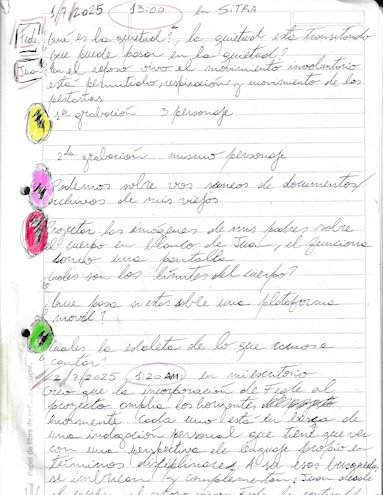 1/7/2025 13:00 en SITRA
Fede
¿Que es la quietud?, la quietud esta transitando
que puede pasar en la quietud?
Juan
En el reposo vivo el movimiento involuntario
está permitido, respiración y movimiento de las
pestañas
1er grabación 3 personaje
2da grabación mismo personaje
Podemos sobre vos de documentos/
archivos de mis viejos
Proyectar las imágenes de mis padres sobre
el cuerpo en blanco de Juan, el funciona
como una pantalla
Cuales son los límites del cuerpo?
Que pasa si estas sobre una plataforma
movil?
Cual es la escaleta de lo que vamos a
contar?
2/7/2025 1:20 am en mi escritorio
Creo que la incorporación de Fede al
proyecto amplia los horizontes del proyecto
enormemente. Cada uno está en busca de
una indagacion personal que tiene que ver
con una perspectiva de lenguaje propio en
términos disciplinares. A su vez esas busquedas
se imbrican y complementan; Juan desde